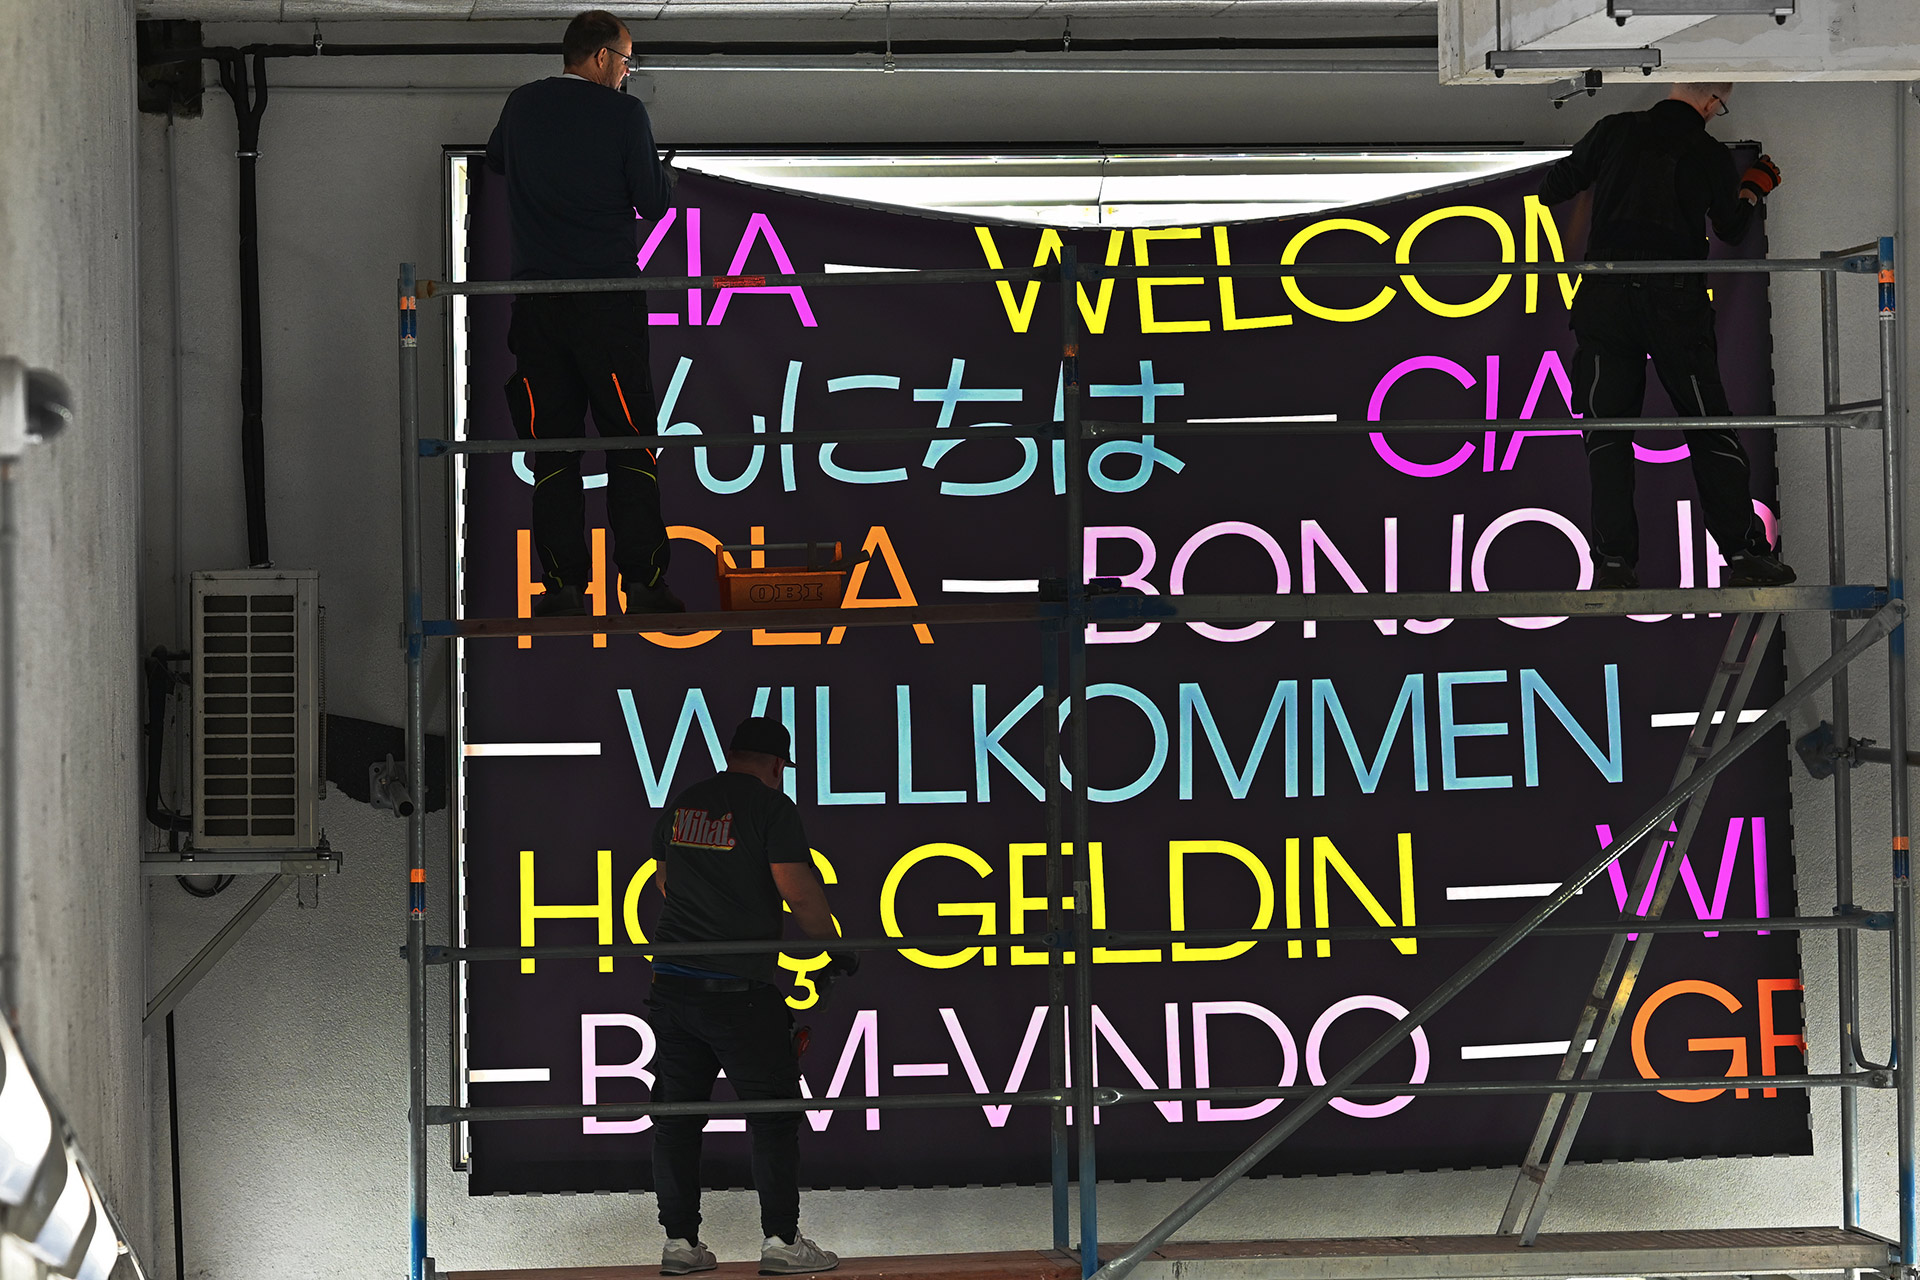 ZIA — WELCOM
こんにちは — CIAO
HOLA — BONJOUR
— WILLKOMMEN —
HOŞ GELDIN — WI
— BEM-VINDO — GR
OBI
Mihaï.